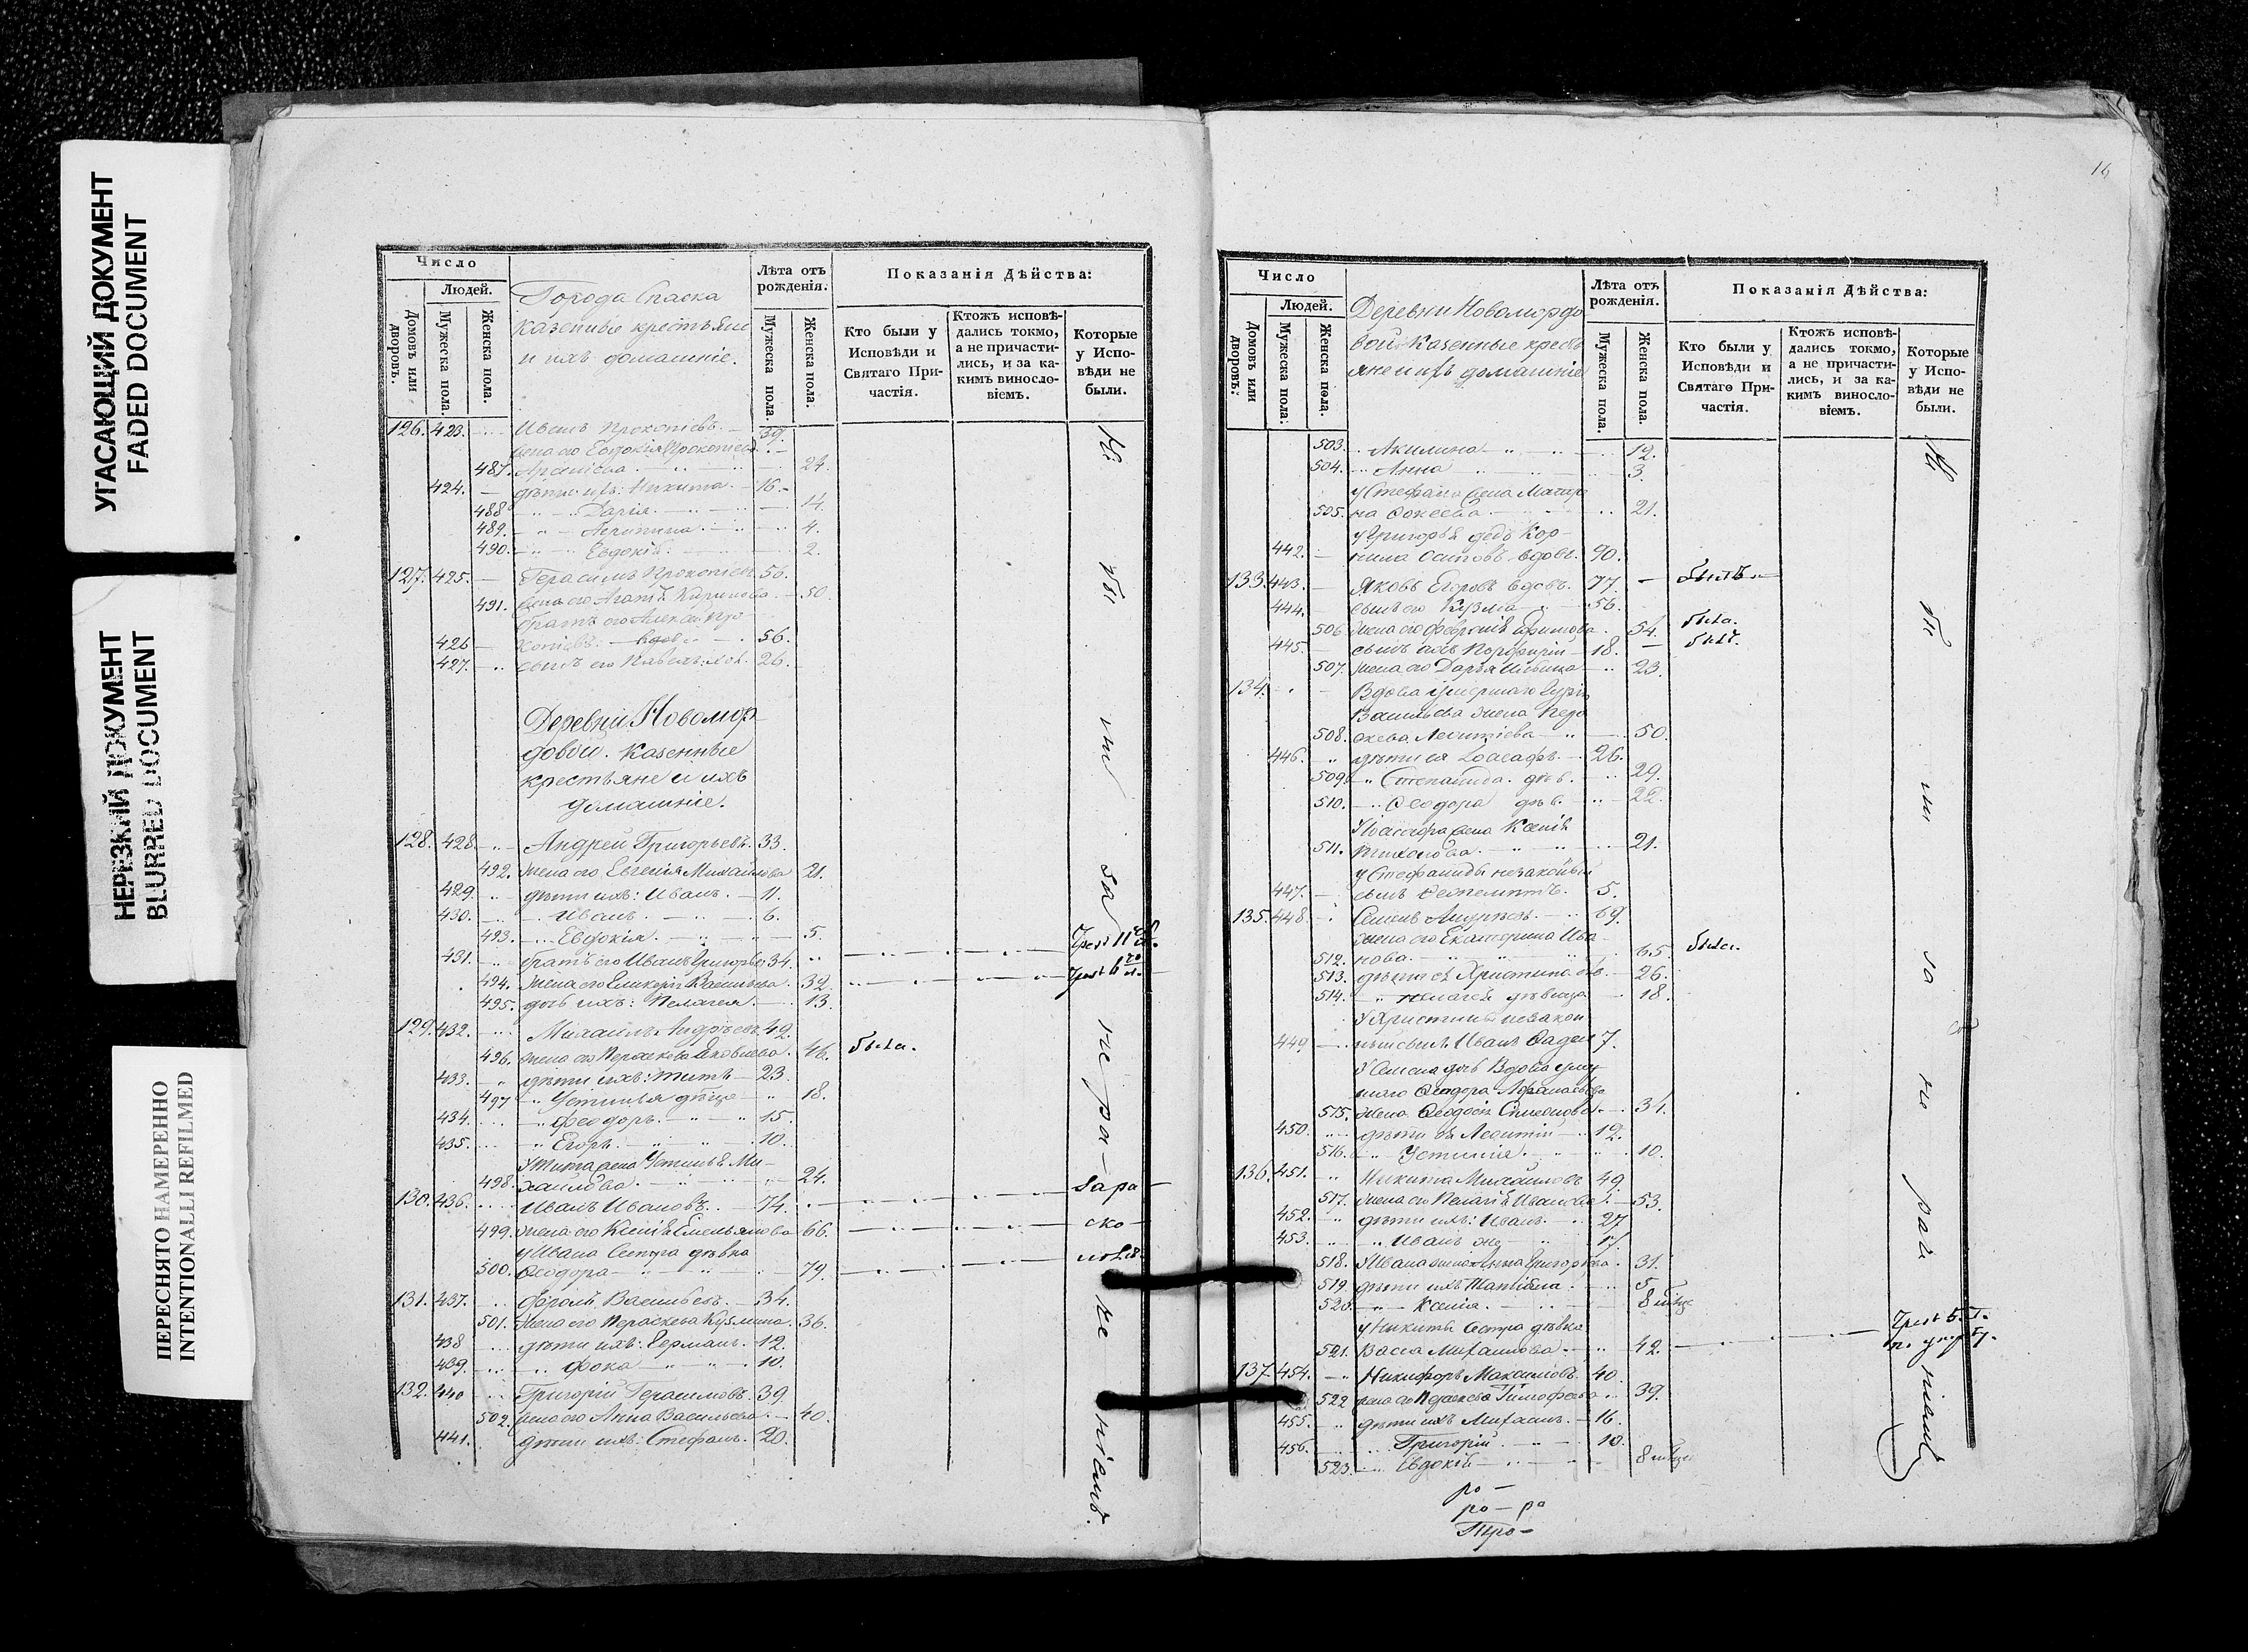 УГАСАЮЩИЙ ДОКУМЕНТ
FADED DOCUMENT
НЕРЕЗКИЙ ДОКУМЕНТ
BLURRED DOCUMENT
ПЕРЕСНЯТО НАМЕРЕННО
INTENTIONALLI REFILMED
Число
Людей.
Домовъ или дворовъ.
Мужеска пола.
Женска пола.
Города Спаска
казенные крестьяне
и ихъ домашніе.
Лѣта отъ рожденія.
Мужеска пола.
Женска пола.
Показанія Дѣйства:
Кто были у Исповѣди и Святаго Причастія.
Ктожъ исповѣдались токмо, а не причастились, и за какимъ винословіемъ.
Которые у Исповѣди не были.
126. 423. Иванъ Прокопіевъ. 39.
жена его Евдокія Прокопіева
487. 24.
424. дѣти ихъ: Никита. 16.
488 Дарія. 14.
489. 4.
490. Евдокія. 2.
127. 425. Герасимъ Прокопіевъ 56.
491. жена его Агапія 50.
братъ его Алексѣй Про
426 копіевъ. вдовъ. 56.
427. сынъ его Павелъ: хол. 26.
Деревни Новомор
довой. казенные
крестьяне и ихъ
домашніе.
128. 428. Андрей Григорьевъ. 33.
492. жена его Евгенія Михайлова 21.
429. дѣти ихъ: Иванъ. 11.
430. Иванъ. 6.
493. Евдокія. 5.
431. братъ его Иванъ Григорьев 34.
494. жена его Гликерія Васильева. 32.
495. дочь ихъ: Пелагея. 13.
129. 432. Михаилъ Андреевъ 49.
496. жена его Параскева Яковлева. 46. была.
433. дѣти ихъ: Титъ 23.
497 Устинья дѣвица 18.
434. Феодоръ. 15.
435. Егоръ. 10.
У Тита жена Устинья Ми-
498. хаилова. 24.
130. 436. Иванъ Ивановъ. 74. за ра-
499. жена его Ксенія Емельянова 66. ско-
у Ивана Сестра дѣвка
500. Ѳеодора 79.
131. 437. Фролъ Васильевъ. 34.
501. жена его Параскева Кузмина. 36.
438 дѣти ихъ: Германъ. 12.
439. Фока 10.
132. 440 Григорій Герасимовъ. 39.
502. жена его Анна Васильева. 40.
441. дѣти ихъ: Стефанъ. 20.
не ра-
ніемъ.
Число
Людей.
Домовъ или дворовъ:
Мужеска пола:
Женска пола.
Деревни Новомордо
вой казенные кресть
яне и ихъ домашніе
Лѣта отъ рожденія.
Мужеска пола.
Женска пола.
Показанія Дѣйства:
Кто были у Исповѣди и Святаго Причастія.
Ктожъ исповѣдались токмо, а не причастились, и за какимъ винословіемъ.
Которые у Исповѣди не были.
503. Акилина 12.
504. Анна 3.
у Стефана жена Матре
505. на Фокеева. 21.
у Григорья дедъ Кор-
442. нила Осиповъ вдовъ. 90.
133. 443. Яковъ Егоровъ вдовъ. 77. былъ
444. сынъ его Кузма 56.
506 жена его Февронія Ефимова 54. была.
445. сынъ ихъ Порфирій 18. былъ.
507. жена его Дарья Ильина 23.
134. Вдова умершаго
Васильева жена
508. Леонтіева 50.
446. дѣти ея Іоасафъ. 26.
509. Степанида. дѣв. 29.
510. Ѳеодора дѣв. 22.
У Іоасафа жена Ксенія
511. Тихонова. 21.
у Стефаниды незаконный
447. сынъ 5.
135. 448. Семенъ Андреевъ. 69.
жена его Екатерина Ива-
512. нова. 65. была.
513. дѣти ея Христина дѣв. 26.
514. Пелагея дѣвица 18.
У Христины незакон
449. ный сынъ Иванъ 7.
У Семена дочь Вдова умер
шаго Ѳеодора Афанасьева
515. жена Ѳеодосія Симеонова. 34.
450. дѣти ея Леонтій 12.
516. Устинія. 10.
136. 451. Никита Михайловъ 49.
517. жена его Пелагія Иванова. 53.
452. дѣти ихъ: Иванъ. 27
453. Иванъ же 17.
518. У Ивана жена Анна Григорьева. 31.
519. дѣти ихъ Татіана. 5.
520. Ксенія. 8 мѣсяц
у Никиты Сестра дѣвка
521. Васса Михаилова. 42.
137. 454. Никифоръ Максимовъ. 40.
522 жена его Параскева Тимофеева 39.
455. дѣти ихъ Михаилъ. 16.
456. Григорій. 10.
523. Евдокія 8 мѣсяц
ро-
ро-ра